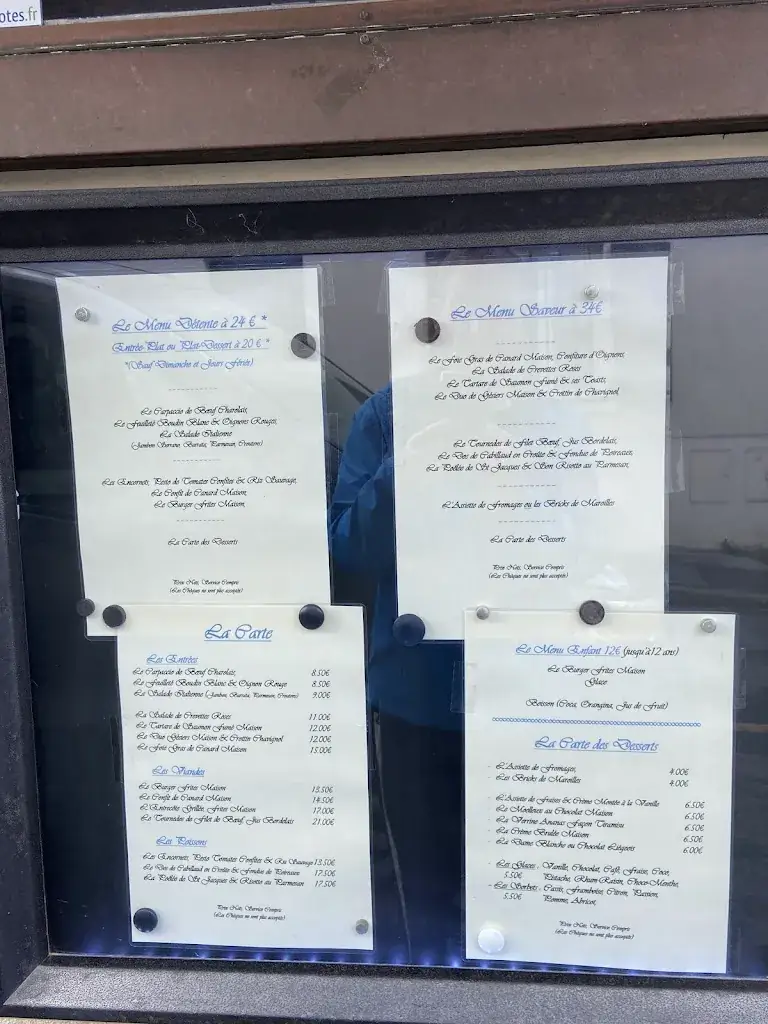 otes.fr
Le Menu Détente à 24 € *
Entrée-Plat ou Plat-Dessert à 20 € *
*(Sauf Dimanche et Jours Fériés)
----------
Le Carpaccio de Bœuf Charolais,
Le Feuilleté Boudin Blanc & Oignons Rouges,
La Salade Italienne
(Jambon Serrano, Burrata, Parmesan, Croutons)
----------
Les Encornets, Pesto de Tomates Confites & Riz Sauvage,
Le Confit de Canard Maison,
Le Burger Frites Maison,
----------
La Carte des Desserts
Prix Nets, Service Compris
(Les Chèques ne sont plus acceptés)
Le Menu Saveur à 34€
------------
Le Foie Gras de Canard Maison, Confiture d'Oignons,
La Salade de Crevettes Roses
Le Tartare de Saumon Fumé & ses Toasts,
Le Duo de Gésiers Maison & Crottin de Chavignol,
------------
Le Tournedos de Filet Bœuf, Jus Bordelais,
Le Dos de Cabillaud en Croûte & Fondue de Poireaux,
La Poêlée de St Jacques & Son Risotto au Parmesan,
------------
L'Assiette de Fromages ou les Bricks de Maroilles
------------
La Carte des Desserts
Prix Nets, Service Compris
(Les Chèques ne sont plus acceptés)
La Carte
Les Entrées
Le Carpaccio de Bœuf Charolais, 8.50€
Le Feuilleté Boudin Blanc & Oignon Rouge 8.50€
La Salade Italienne (Jambon, Burrata, Parmesan, Croutons) 9.00€
La Salade de Crevettes Roses 11.00€
Le Tartare de Saumon Fumé Maison 12.00€
Le Duo Gésiers Maison & Crottin Chavignol 12.00€
Le Foie Gras de Canard Maison 15.00€
Les Viandes
Le Burger Frites Maison 13.50€
Le Confit de Canard Maison 14.50€
L'Entrecôte Grillée, Frites Maison 17.00€
Le Tournedos de Filet de Bœuf, Jus Bordelais 21.00€
Les Poissons
Les Encornets, Pesto Tomates Confites & Riz Sauvage 13.50€
Le Dos de Cabillaud en Croûte & Fondue de Poireaux 17.50€
La Poêlée de St Jacques & Risotto au Parmesan 17.50€
Prix Nets, Service Compris
(Les Chèques ne sont plus acceptés)
Le Menu Enfant 12€ (jusqu'à 12 ans)
Le Burger Frites Maison
Glace
Boisson (Coca, Orangina, Jus de Fruit)
La Carte des Desserts
- L'Assiette de Fromages, 4.00€
- Les Bricks de Maroilles 4.00€
- L'Assiette de Fraises & Crème Montée à la Vanille 6.50€
- Le Moelleux au Chocolat Maison 6.50€
- La Verrine Ananas Façon Tiramisu 6.50€
- La Crème Brulée Maison 6.50€
- La Dame Blanche ou Chocolat Liégeois 6.00€
- Les Glaces - Vanille, Chocolat, Café, Fraise, Coco,
5.50€ Pistache, Rhum-Raisin, Choco-Menthe,
- Les Sorbets - Cassis, Framboise, Citron, Passion,
5.50€ Pomme, Abricot,
Prix Nets, Service Compris
(Les Chèques ne sont plus acceptés)